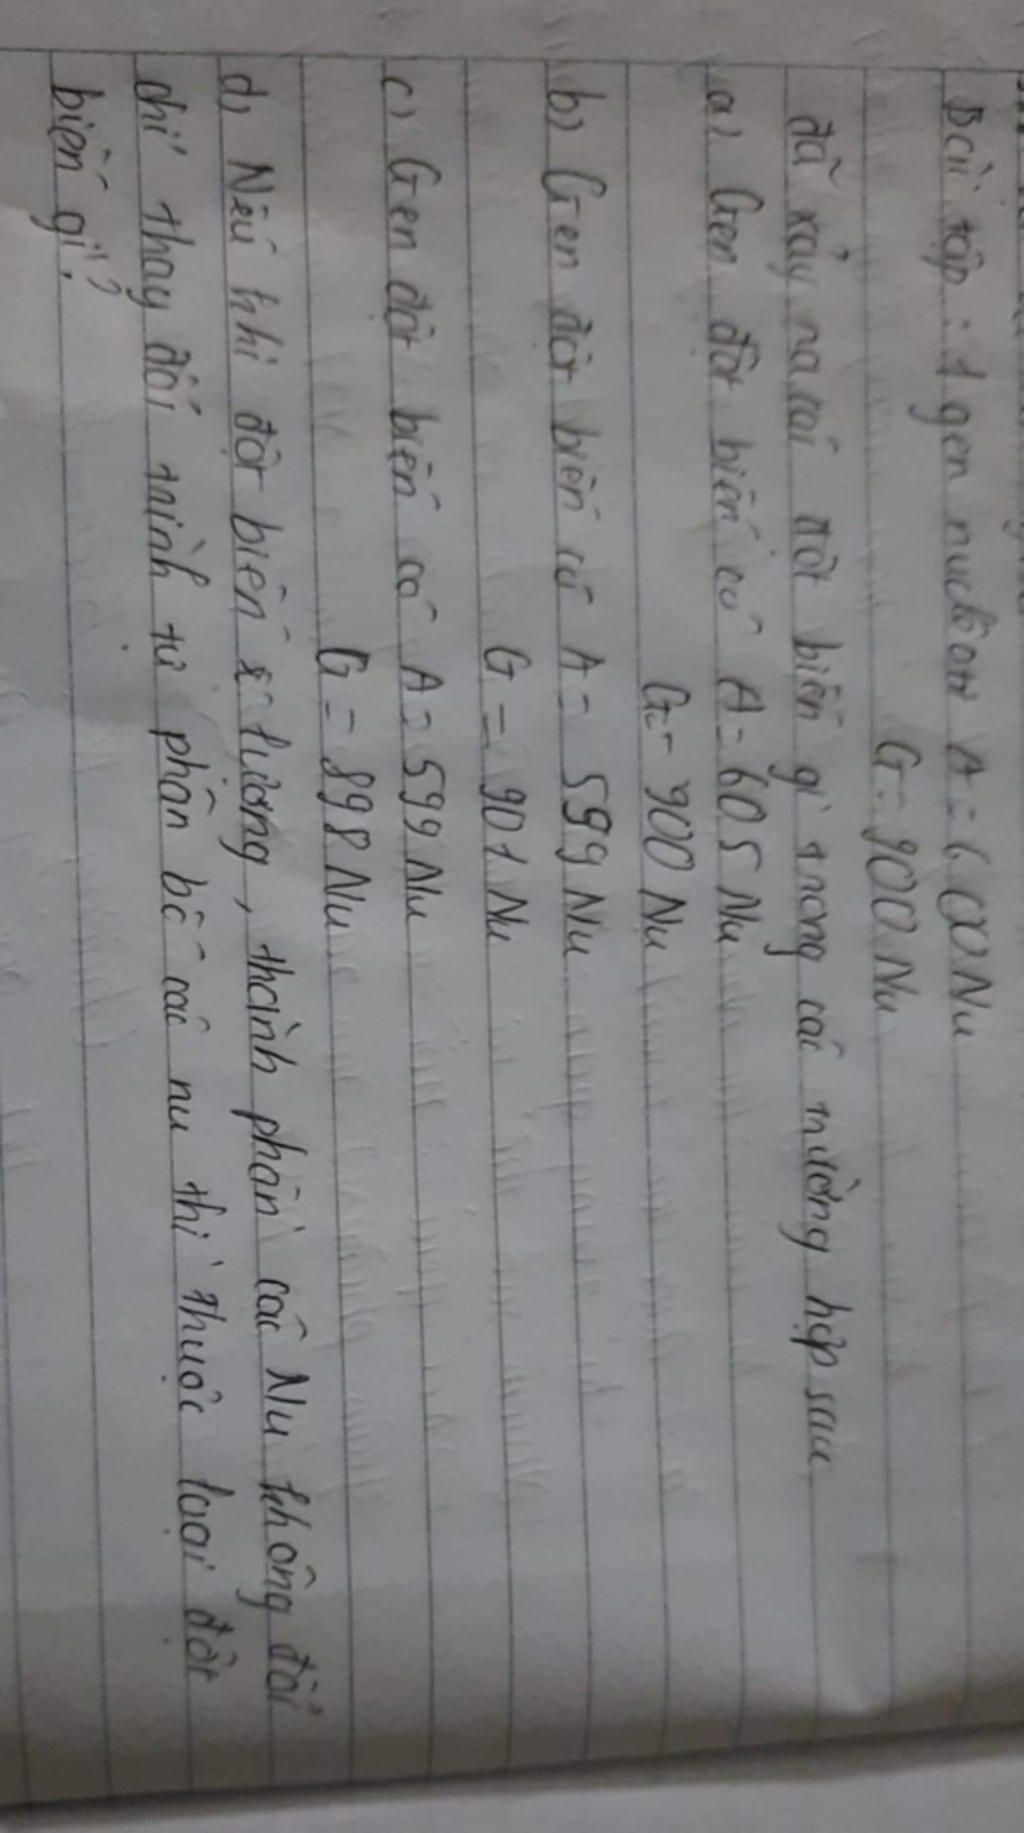 Bài tập : 1 gen nuclêôtit A = 600 Nu
G = 900 Nu
đã xảy ra cái đột biến gì trong các trường hợp sau
a) Gen đột biến có A = 605 Nu
G = 900 Nu
b) Gen đột biến có A = 599 Nu
G = 901 Nu
c) Gen đột biến có A = 599 Nu
G = 898 Nu
d) Nếu khi đột biến lượng, thành phần các Nu không đổi
chỉ thay đổi trình tự phân bố các nu thì thuộc loại đột
biến gì?